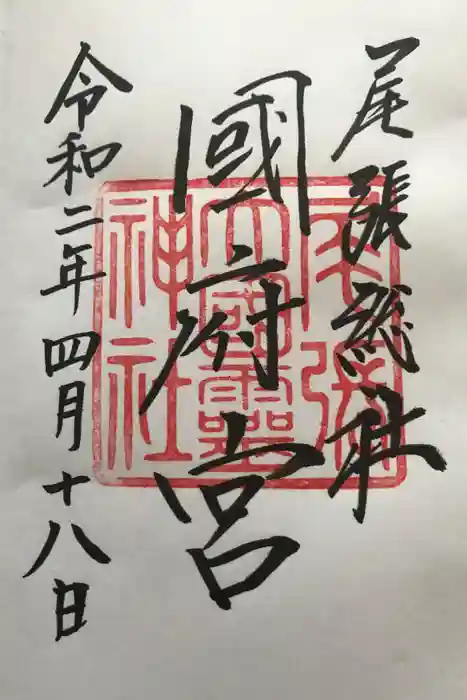 尾張総社
國府宮
令和二年四月十八日
尾張
大國霊
神社